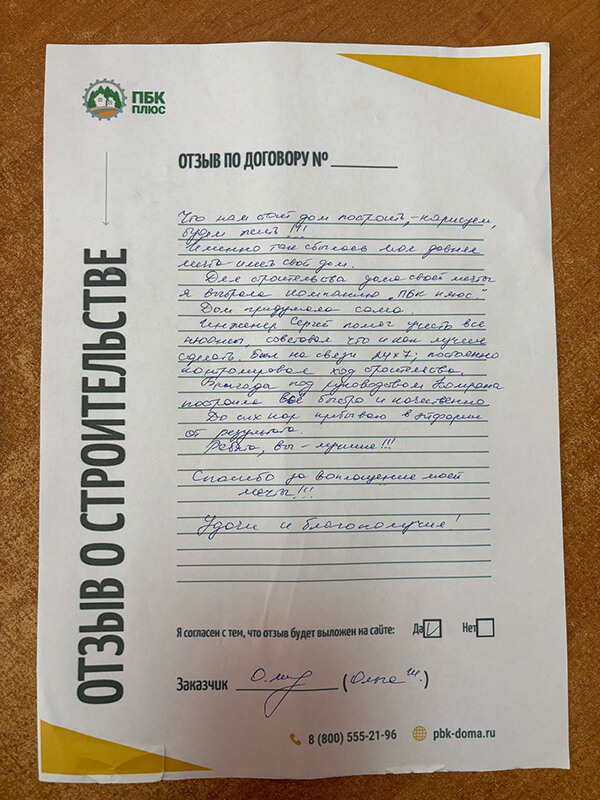 ПБК
ПЛЮС
ОТЗЫВ ПО ДОГОВОРУ № ________
ОТЗЫВ О СТРОИТЕЛЬСТВЕ
Что нам стоит дом построить, - нарисуем,
будем жить!!!
Именно так сбылась моя давняя
мечта - иметь свой дом.
Для строительства дома своей мечты
я выбрала компанию „ПБК плюс".
Дом придумала сама.
Инженер Сергей помог учесть все
нюансы, советовал что и как лучше
сделать. Был на связи 24х7; постоянно
контролировал ход строительства.
Бригада под руководством
построила всё быстро и качественно
До сих пор пребываю в эйфории
от результата.
Ребята, вы - лучшие!!!
Спасибо за воплощение моей
мечты!!!
Удачи и благополучия!
Я согласен с тем, что отзыв будет выложен на сайте: Да Нет
Заказчик (Ольга Ш.)
8 (800) 555-21-96 pbk-doma.ru